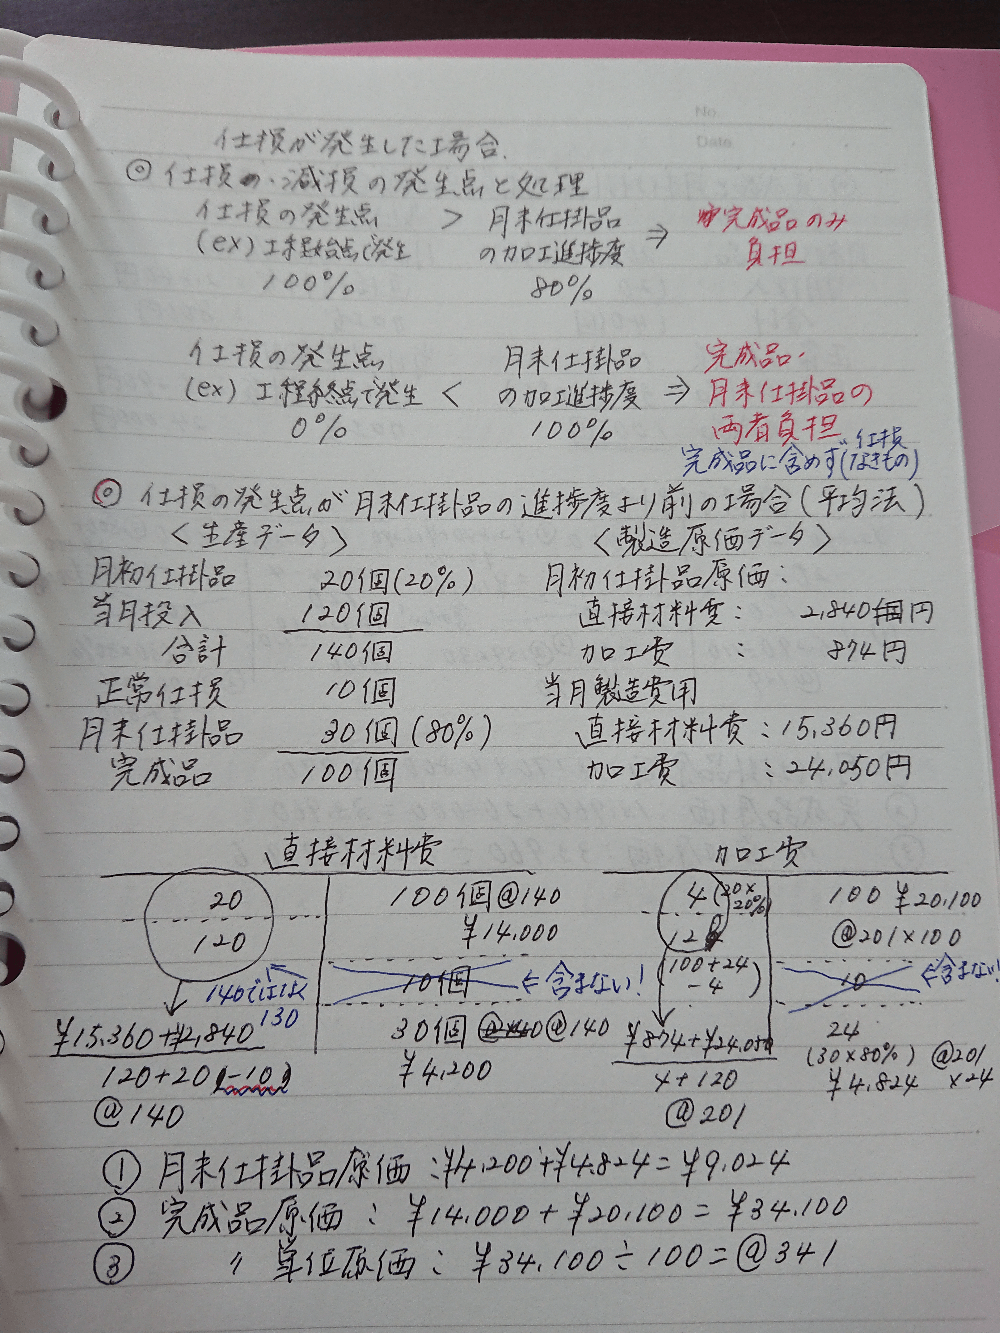 仕損が発生した場合.
◎仕損の・減損の発生点と処理
仕損の発生点 > 月末仕掛品の加工進捗度 ⇒ 完成品のみ負担
(ex) 工程始点で発生
100% 80%
仕損の発生点 < 月末仕掛品の加工進捗度 ⇒ 完成品・月末仕掛品の両者負担
(ex) 工程終点で発生
0% 100%
完成品に含めず(仕損なきもの)
◎仕損の発生点が月末仕掛品の進捗度より前の場合(平均法)
<生産データ> <製造原価データ>
月初仕掛品 20個(20%) 月初仕掛品原価:
当月投入 120個 直接材料費: 2,840円
合計 140個 加工費 : 874円
正常仕損 10個 当月製造費用
月末仕掛品 30個(80%) 直接材料費:15,360円
完成品 100個 加工費 :24,050円
直接材料費 加工費
20 100個@140 4(20×20%) 100 ¥20,100
120 ¥14,000 120 @201×100
140ではなく130 10個 ⇐含まない! (100+24-4) 10 ⇐含まない!
¥15,360+¥2,840 30個 @140 ¥874+¥24,050 24
120+20(-10) ¥4,200 4+120 (30×80%) @201×24
@140 @201 ¥4,824
① 月末仕掛品原価:¥4,200+¥4,824=¥9,024
② 完成品原価: ¥14,000+¥20,100=¥34,100
③ 〃 単位原価: ¥34,100÷100=@341